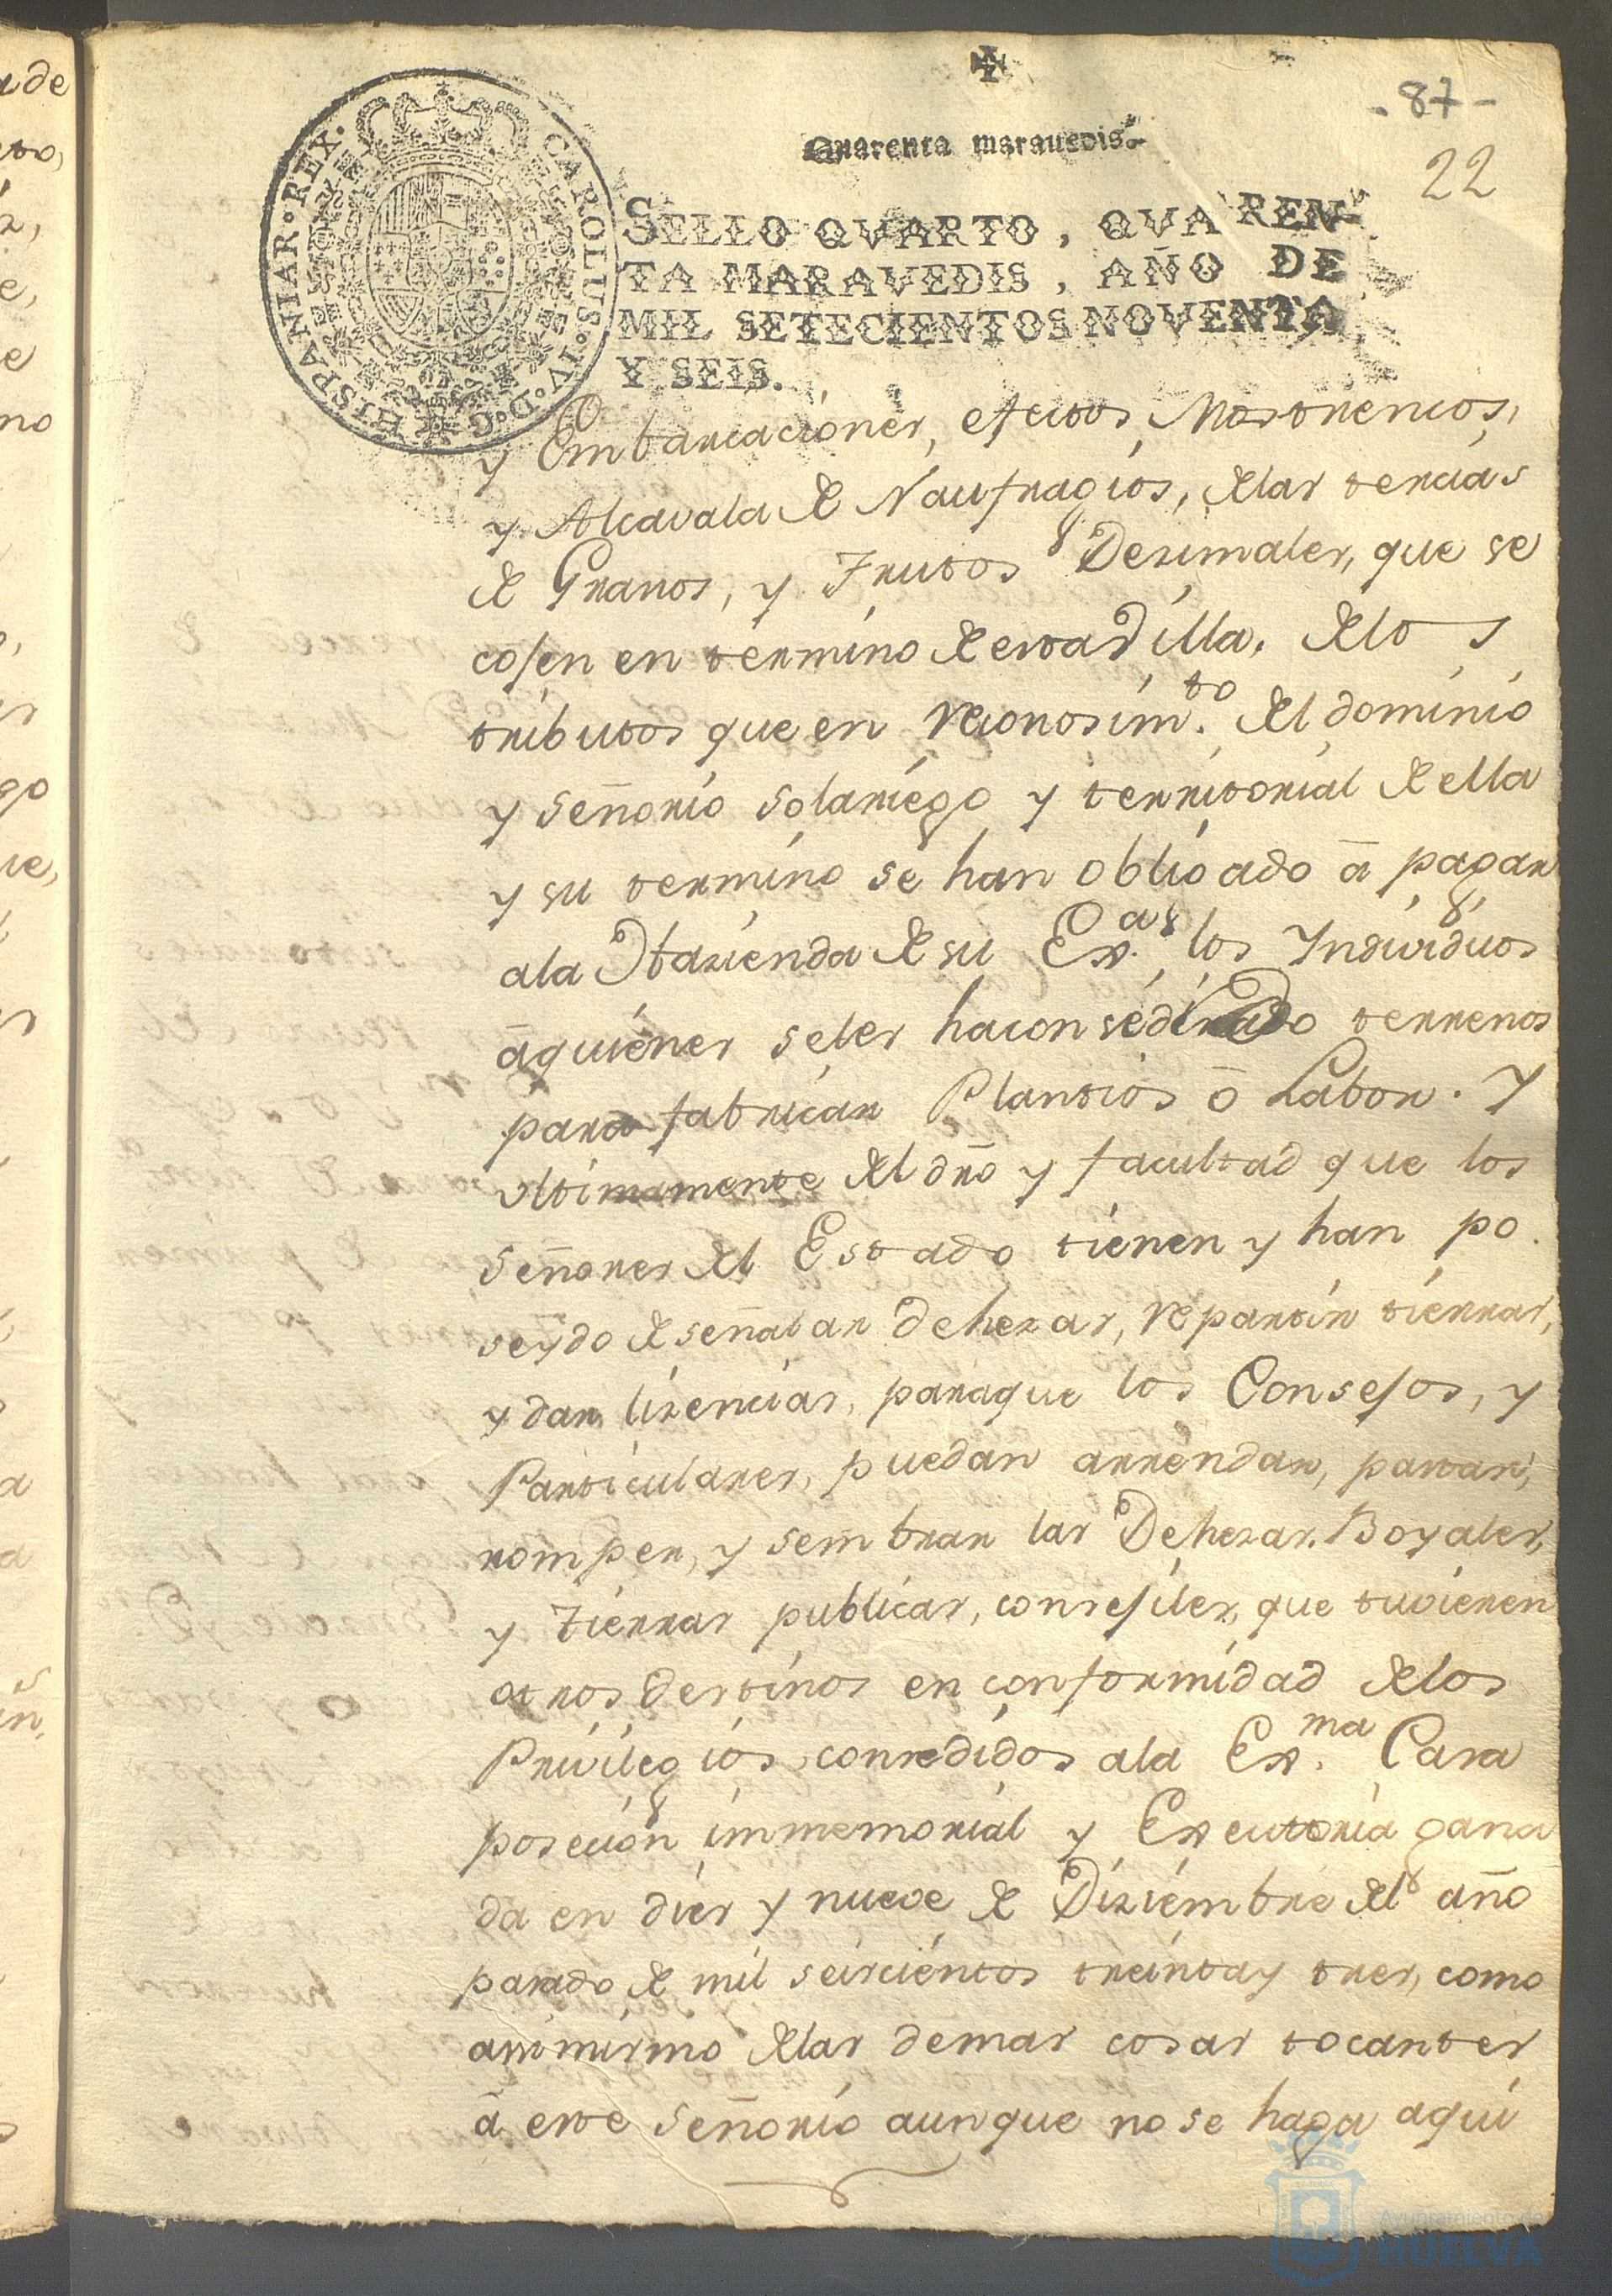 - 87 -
22
Quarenta marauedis.
CAROLUS. IV. D. G. HISPANIAR. REX.
SELLO QVARTO, QVAREN-
TA MARAVEDIS, AÑO DE
MIL SETECIENTOS NOVENTA
Y SEIS.
y Embarcaciones, efectos Mostrencos,
y Alcavala de Naufragios, delas tercias
de Granos, y Frutos Dezimales, que se
cojen en termino de esta Villa. delos
tributos que en reconosim.to del dominio
y señorio solariego y territorial de ella
y su termino se han obligado â pagar
ala Hazienda de su Ex.as los Yndividuos
âquienes seles ha con sedido terrenos
para fabricar Plantios ô Labor. Y
vltimamente del dro y facultad que los
señores del Estado tienen y han po
seydo de señalar dehezas, repartir tierras,
y dar lizencias, paraque los Consejos, y
Particulares, puedan arrendar, pastar,
romper, y sembrar las Dehezas. Boyales,
y tierras publicas, consejiles, que tuvieren
otros destinos en conformidad delos
Privilegios, consedidos ala Ex.ma Casa
poseción immemorial y Executoria gana
da en dies y nueve de Diziembre del año
pasado de mil seiscientos treinta y tres, como
assimismo delas demas cosas tocantes
â este Señorio aunque no se haga aqui
Ayuntamiento de
HUELVA